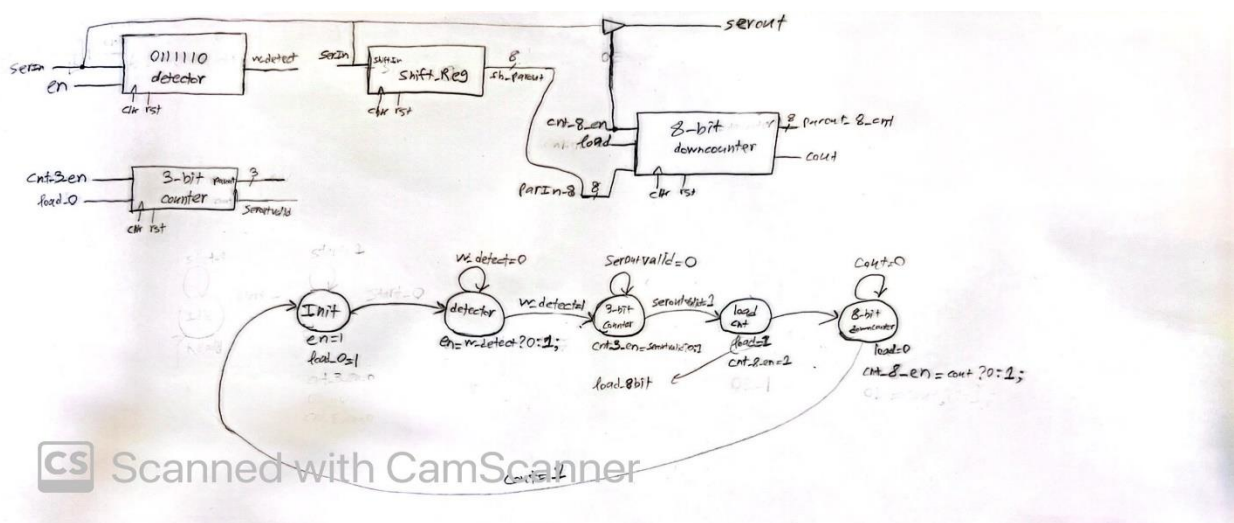 serout
serIn
en
0111110
detector
w_detect
clk rst
serIn
shiftIn
Shift_Reg
8
sh_parout
clk rst
cnt_8_en
load
ParIn_8
8
8-bit
downcounter
8
parout_8_cnt
cout
clk rst
cnt_3_en
load_0
3-bit
counter
parout
3
Seroutvalid
clk rst
Init
en=1
load_0=1
w_detect=0
detector
en=w_detect?0:1;
w_detect=1
Seroutvalid=0
3-bit
counter
cnt_3_en=seroutvalid?0:1
seroutvalid=1
load
cnt
load=1
cnt_8_en=1
load_8bit
Cout=0
8-bit
downcounter
load=0
cnt_8_en = cout ?0:1;
Cout=1
CS Scanned with CamScanner